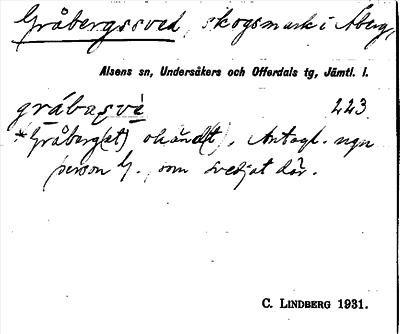 Gråbergssved, skogsmark i Åberg,
Alsens sn, Undersåkers och Offerdals tg, Jämtl. l.
gråbasvè 223
*Gråberg(et) okänd(t). Antagl. ngn
person G., som svedjat där.
C. LINDBERG 1931.